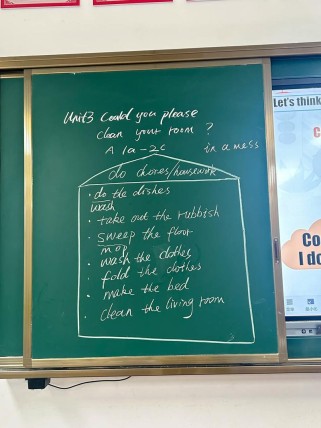 Unit3 Could you please
clean your room ?
A 1a-2c
in a mess
do chores/housework
· do the dishes
wash
· take out the rubbish
· sweep the floor
mop
· wash the clothes
· fold the clothes
· make the bed
· clean the living room
Let's think
Co
I do